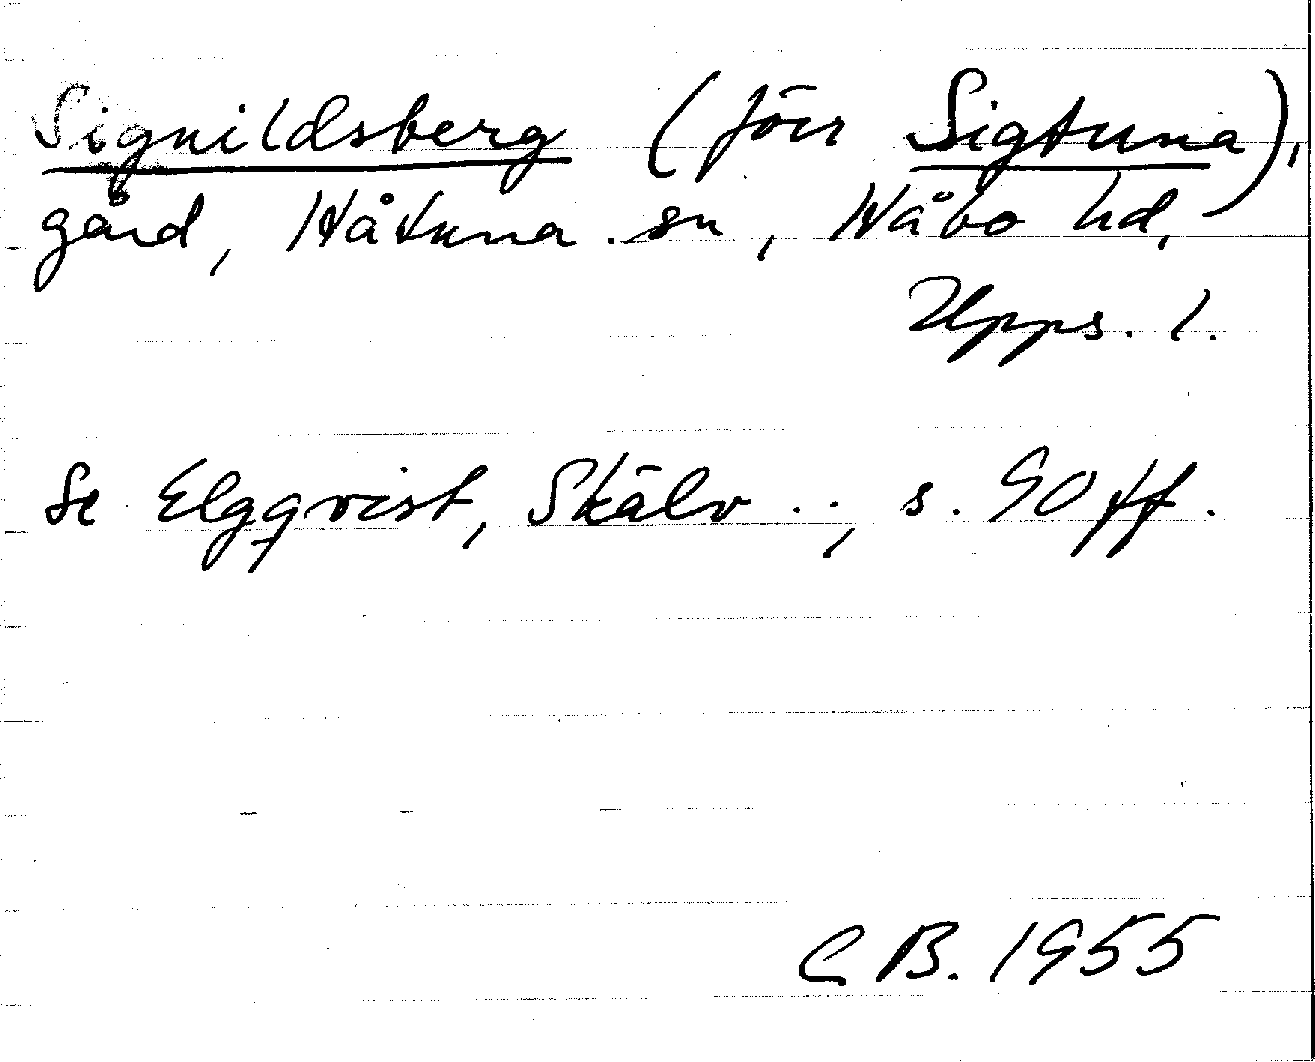 Signildsberg (förr Sigtuna),
gård, Håtuna sn, Håbo hd,
Upps. l.
Se Elgqvist, Skälv .., s. 90 ff.
C B. 1955